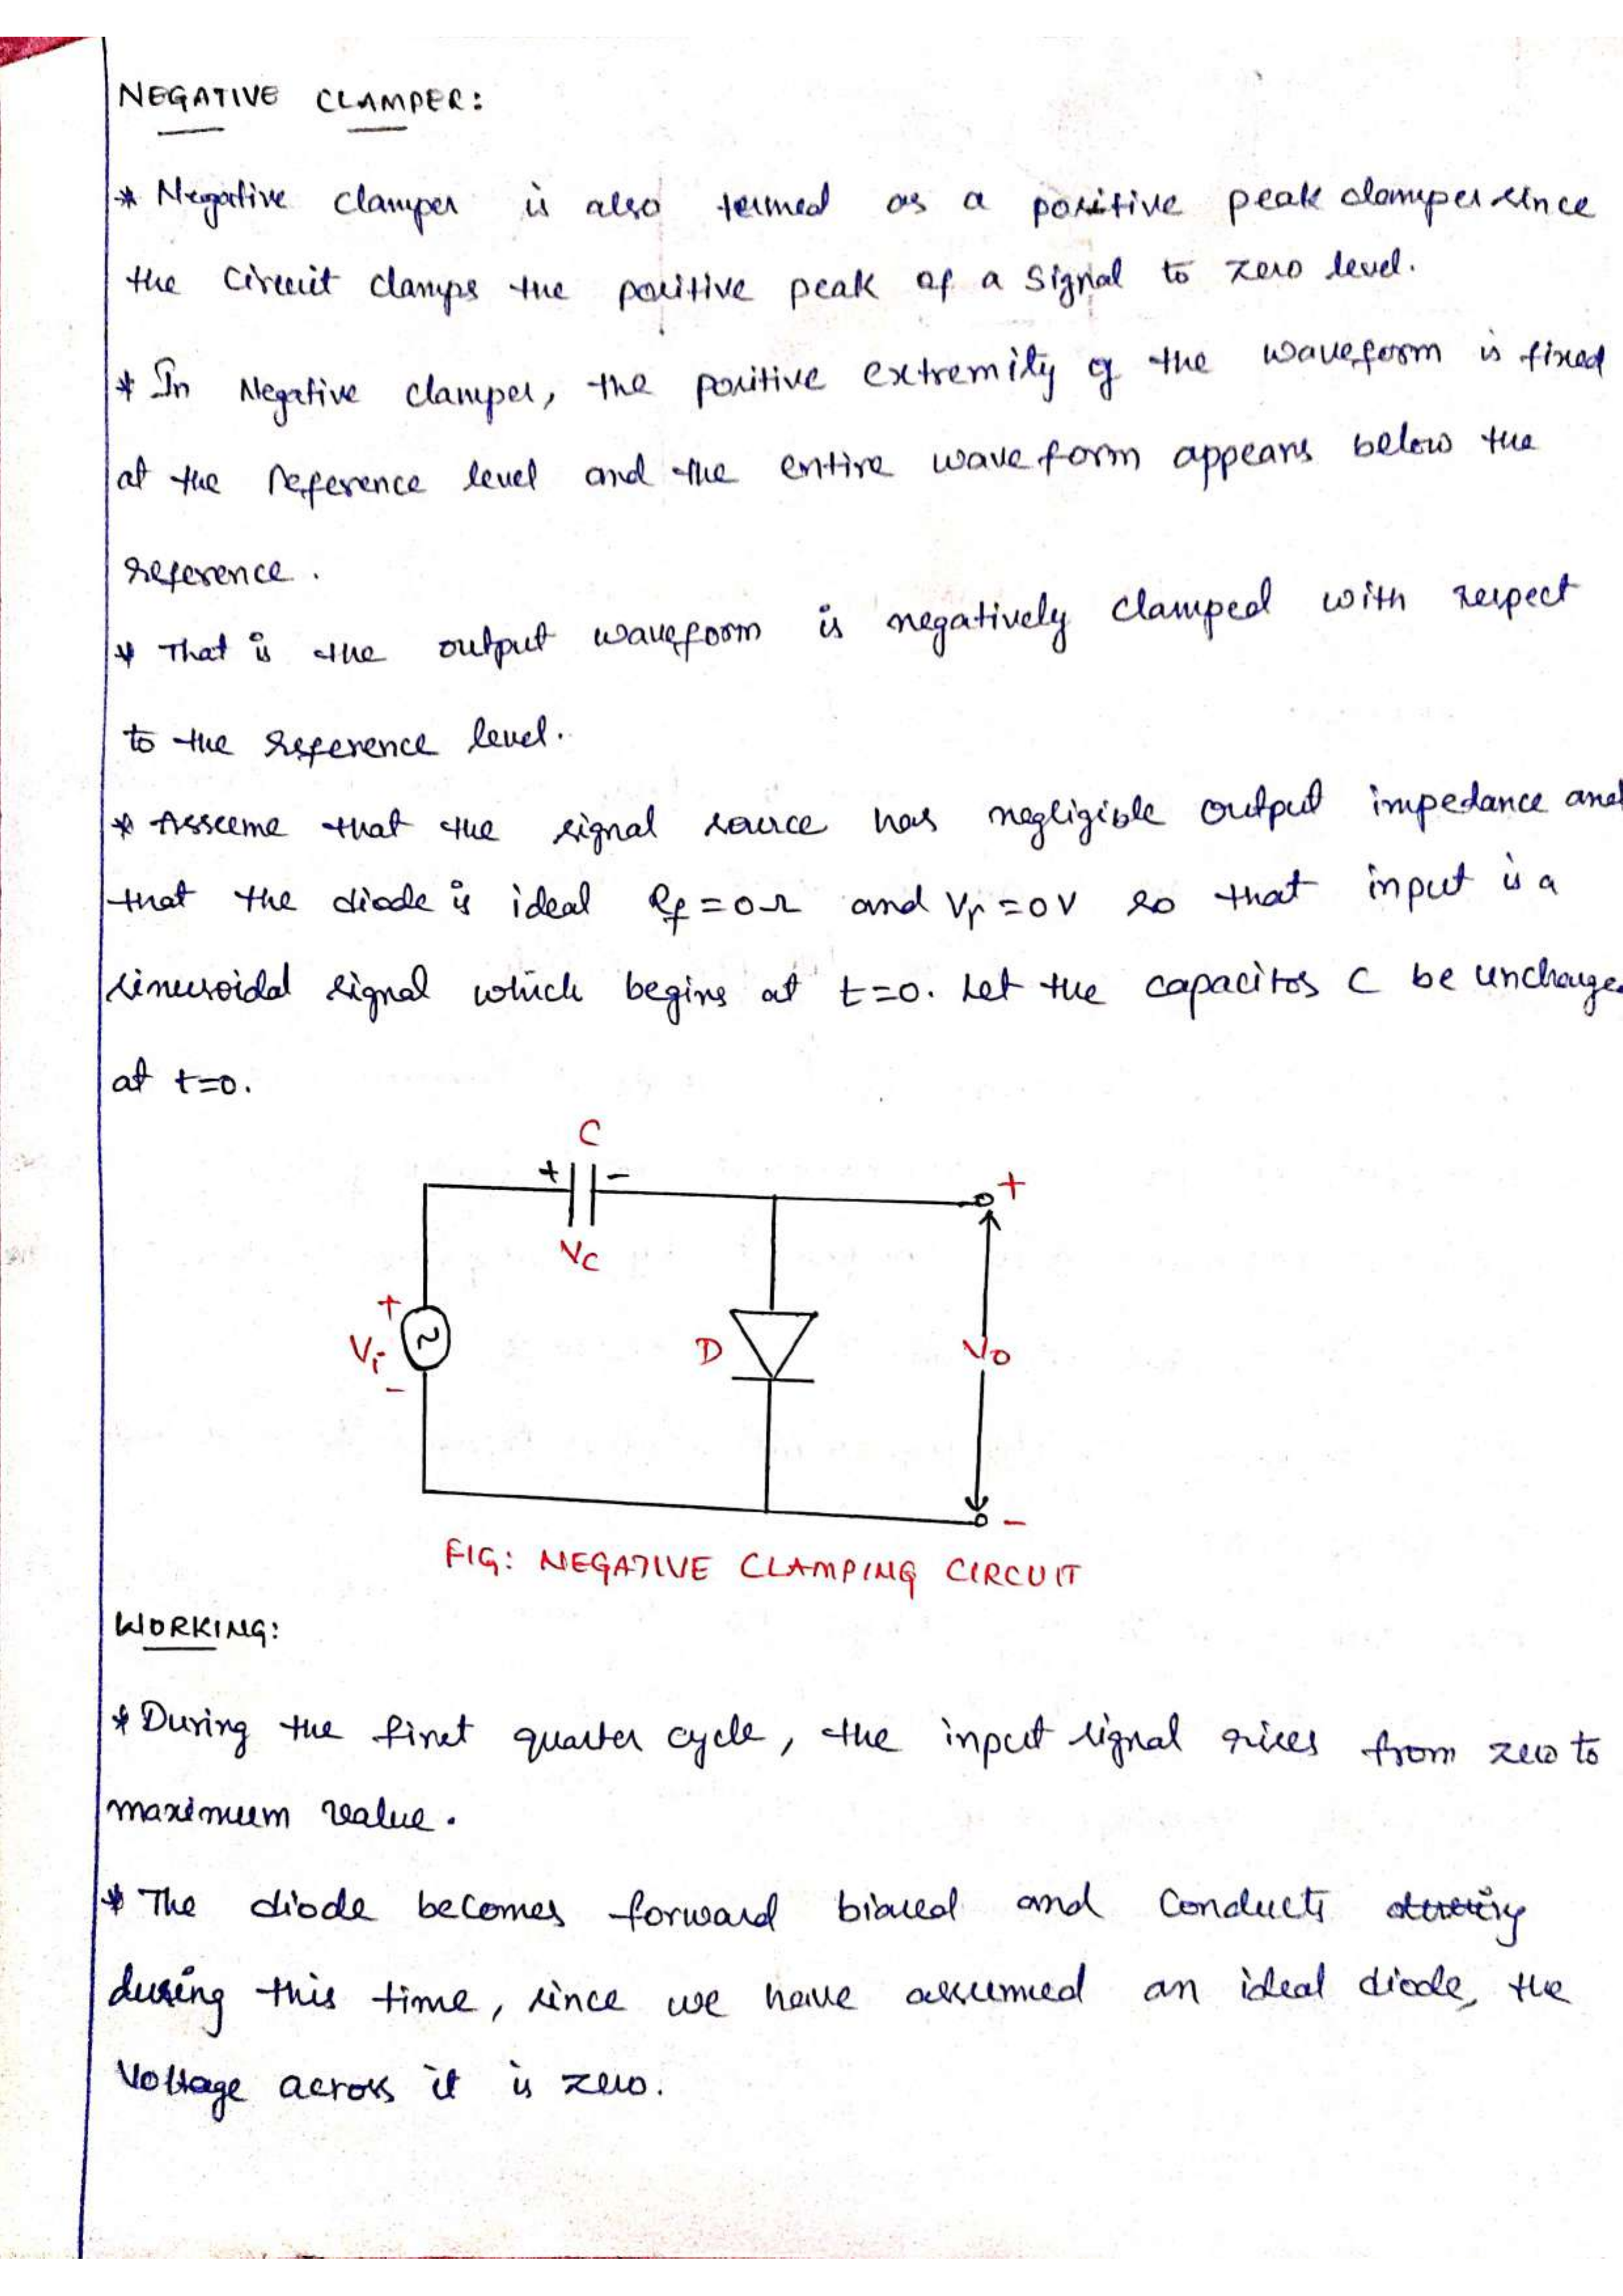 NEGATIVE CLAMPER:
* Negative clamper is also termed as a positive peak clamper since
the circuit clamps the positive peak of a signal to zero level.
* In Negative clamper, the positive extremity of the waveform is fixed
at the reference level and the entire wave form appears below the
reference.
* That is the output waveform is negatively clamped with respect
to the reference level.
* Assume that the signal source has negligible output impedance and
that the diode is ideal Rf=0Ω and Vr=0V so that input is a
sinusoidal signal which begins at t=0. Let the capacitor C be uncharge
at t=0.
C
+ -
+
VC
+
Vi ~
-
D
Vo
-
FIG: NEGATIVE CLAMPING CIRCUIT
WORKING:
* During the first quarter cycle, the input signal rises from zero to
maximum value.
* The diode becomes forward biased and conducts
during this time, since we have assumed an ideal diode, the
Voltage across it is zero.